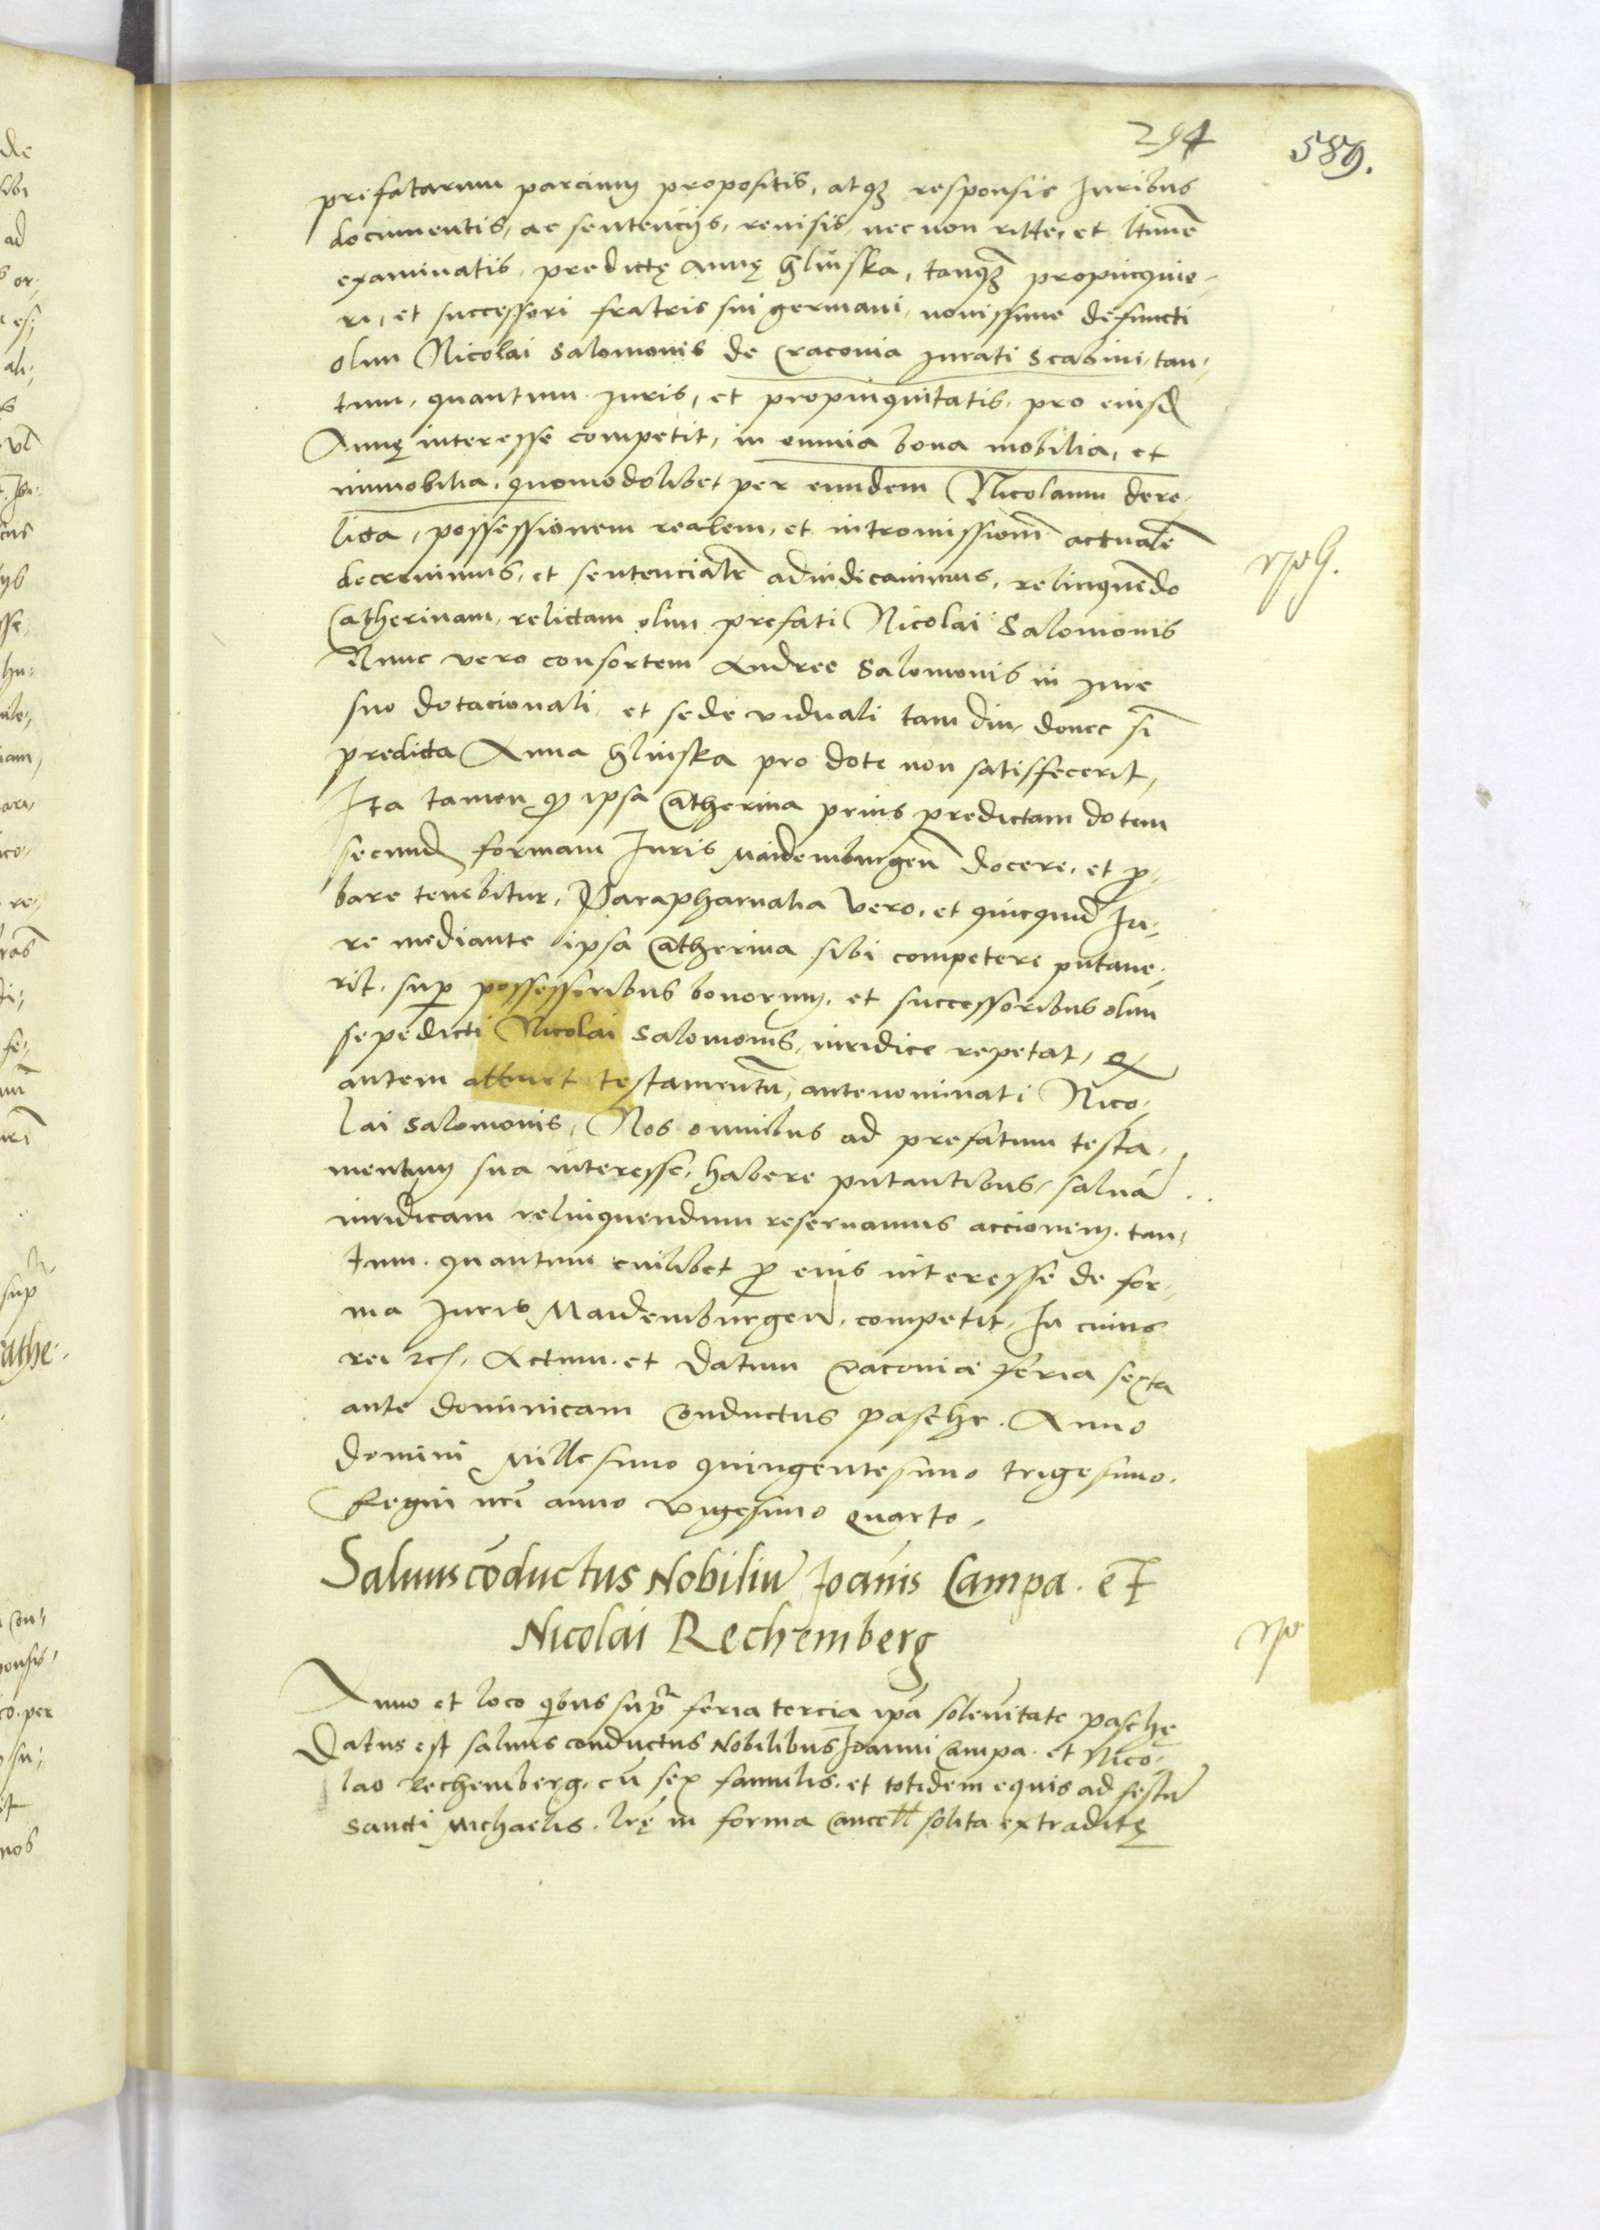 294
589.
prefatarum parcium propositis, atq3 responsis Juribus
documentis, ac sentencijs, revisis, nec non ritte, et ltimē
examinatis, predictę annę glinska, tanq3 propinquio-
ri, et successori fratris sui germani, novissime defuncti
olim Nicolai Salomonis de Cracovia Jurati Scabini, tan-
tum, quantum Juris, et propinquitatis, pro eiusd
Annę interesse competit, in omnia bona mobilia, et
immobilia, quomodolibet per eundem Nicolaum dere-
licta, possessionem realem, et intromissionē actualē
decrevimus, et sentencialr adiudicavimus, relinquēdo
Catherinam, relictam olim prefati Nicolai Salomonis
Nunc vero consortem Andree Salomonis in Jure
suo dotacionali, et sede viduali tam diu, donec sī
predicta Anna glinska pro dote non satisfecerit,
Ita tamen, q ipsa Catherina prius predictam dotem
secund formam Juris Maidemburgeñ docere, et p-
bare tenebitur, Paraphernalia vero, et quicquid Ju-
re mediante ipsa Catherina sibi competere putave-
rit, sup possessoribus bonorum, et successoribus olim
sepedicti Nicolai Salomonis, iuridice repetat, Q
autem attinet testamentū, antenominati Nico-
lai Salomonis, Nos omnibus ad prefatum testa-
mentum sua interesse, habere putantibus, salvā
iuridicam relinquendum reservamus accionem, tan-
tum, quantum cuilibet p eius interesse de for-
ma Juris Maidemburgeñ, competit, In cuius
rei Actum et Datum Cracovia feria sexta
ante dominicam Conductus pasche, Anno
domini Millesimo quingentesimo trigesimo,
Regni nri anno vigesimo quarto,
Salvuscōductus Nobiliū Joānis Campa. et
Nicolai Rechemberg
Anno et loco qbus supra feria tercia ipā solēnitate paschę
Datus est salvus conductus Nobilibus Joanni Campa. et Nico-
lao Rechemberg, cū sex famulis, et totidem equis ad festū
Sancti Michaelis. lrę in forma Cancell solita extraditę